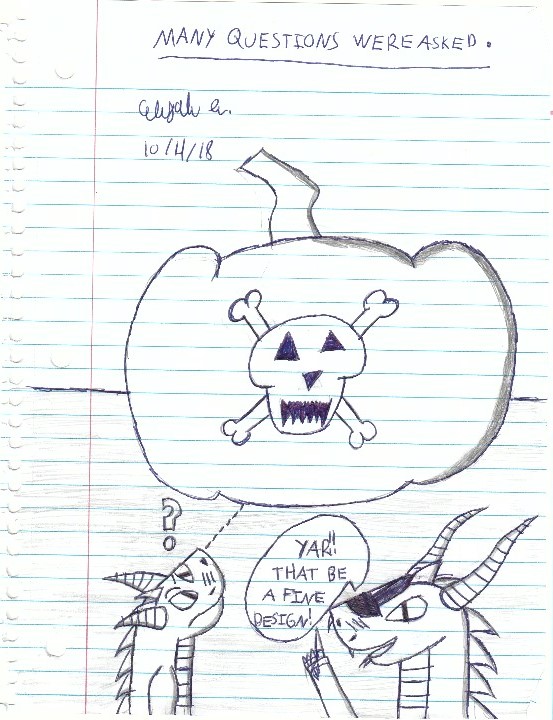 MANY QUESTIONS WERE ASKED.
10/4/18
?
YAR!!
THAT BE
A FINE
DESIGN!